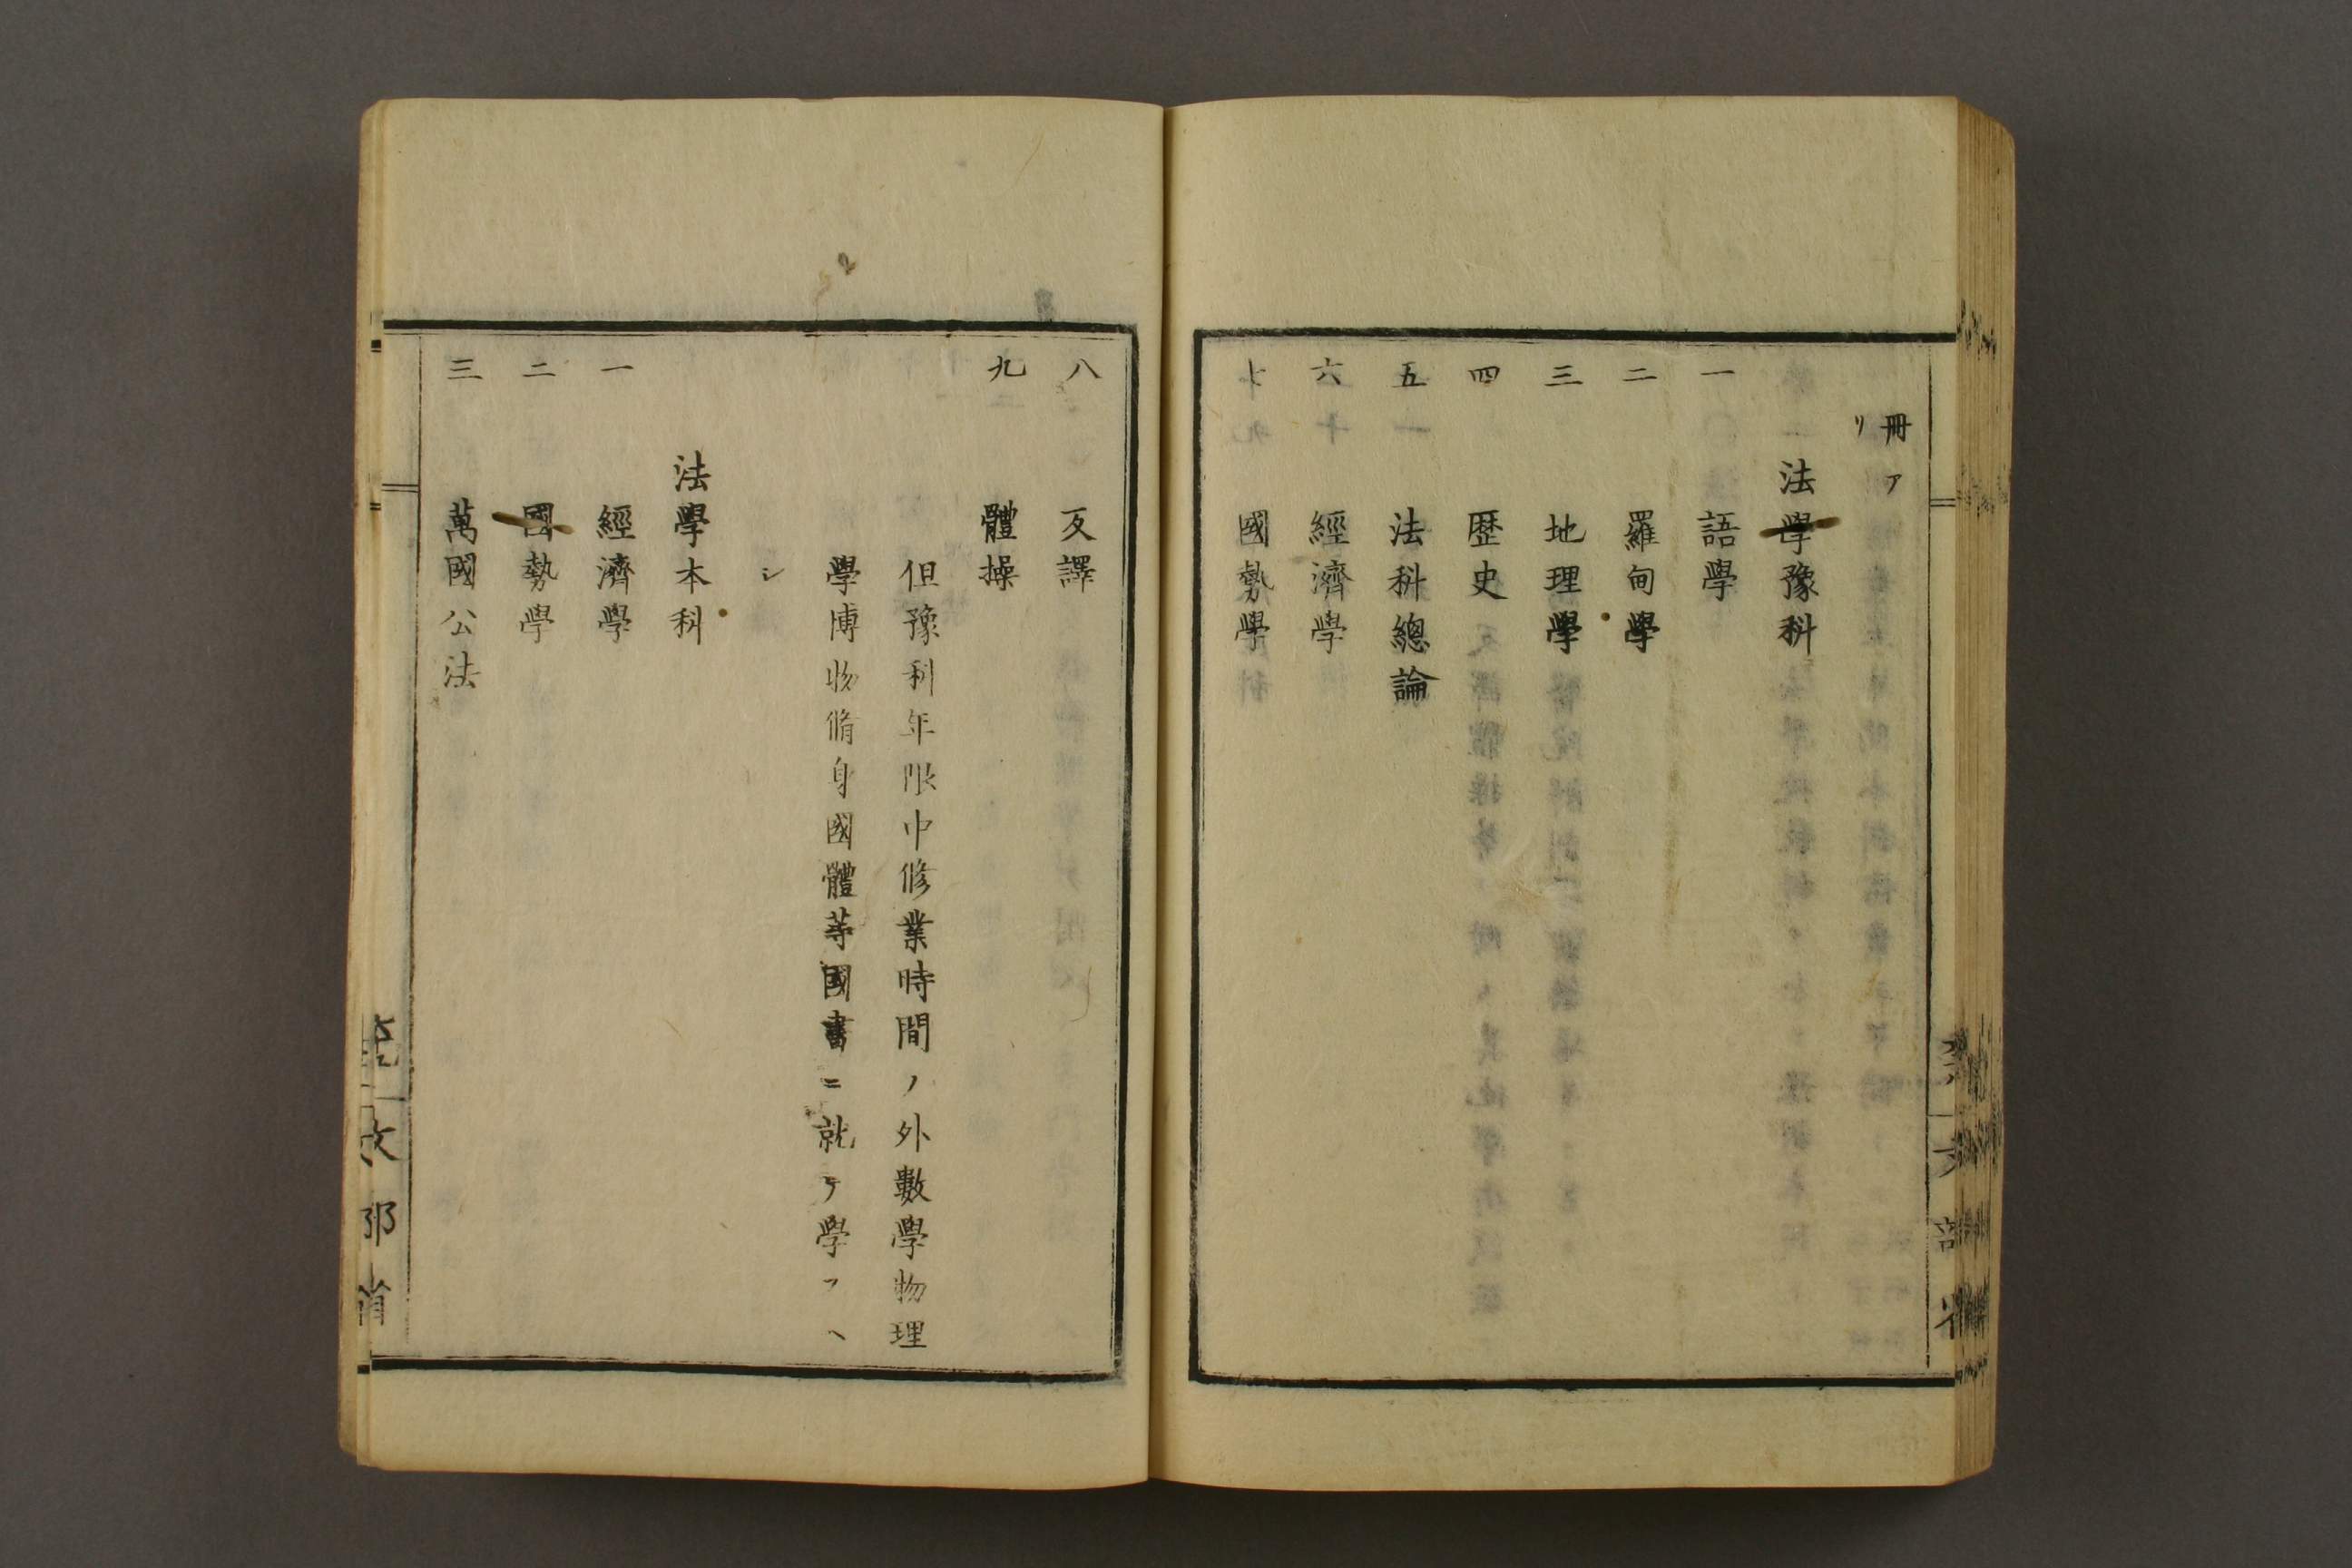 冊ア
リ
法學豫科
一 語學
二 羅甸學
三 地理學
四 歴史
五 法科總論
六 經濟學
國勢學
八 反譯
九 體操
但豫科年限中修業時間ノ外數學物理
學博物脩身國體等國書ニ就テ學フヘ
シ
法學本科
一 經濟學
二 國勢學
三 萬國公法
文部省
文部省